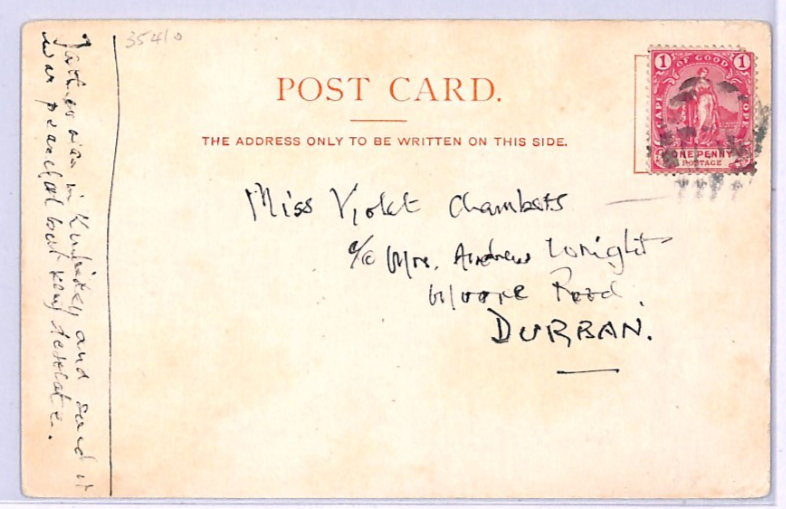 3541 o
POST CARD.
THE ADDRESS ONLY TO BE WRITTEN ON THIS SIDE.
1 OF GOOD 1
ONE PENNY
POSTAGE
Miss Violet Chambers
c/o Mrs. Andrew Wright
Moore Road.
DURBAN.
Father was in Kimberley and said it
was peaceful but very desolate.